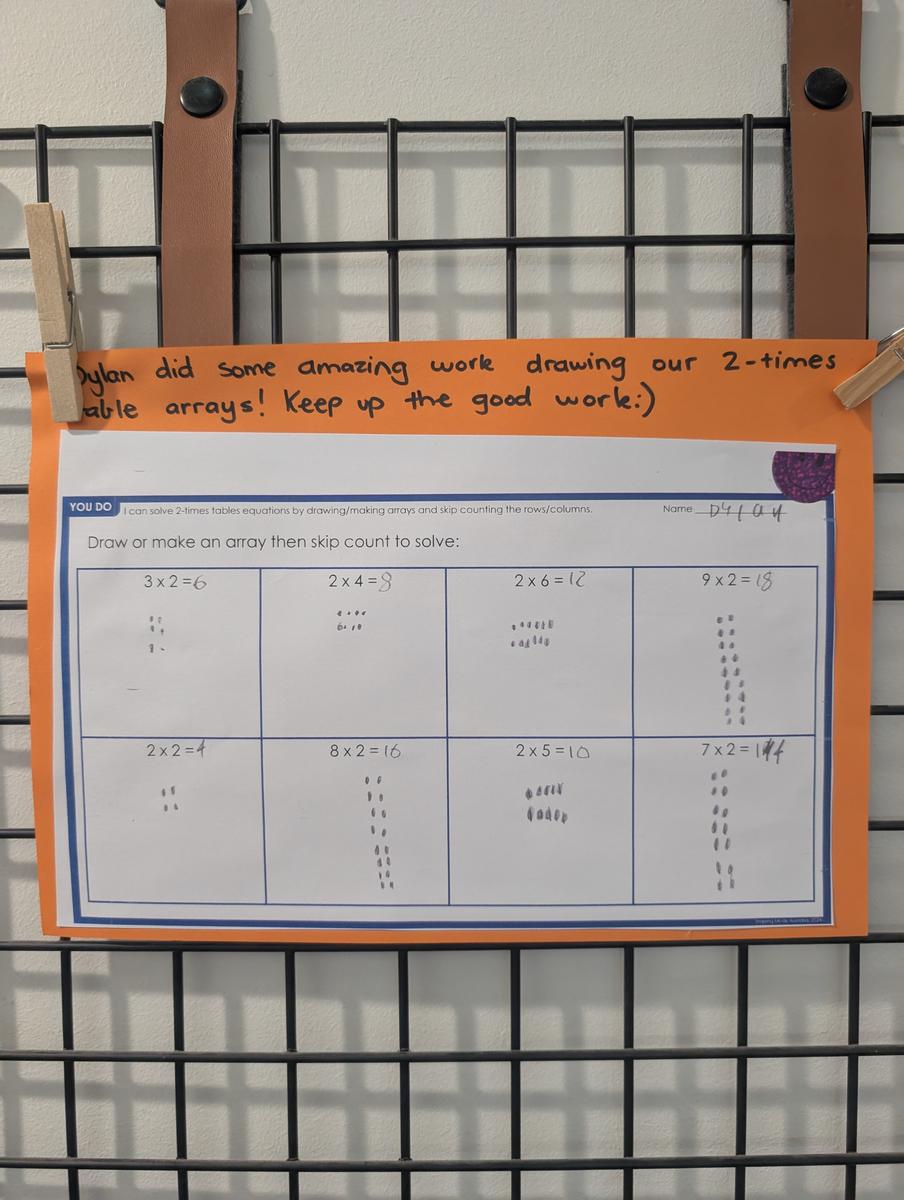 Dylan did some amazing work drawing our 2-times
table arrays! Keep up the good work:)
YOU DO I can solve 2-times tables equations by drawing/making arrays and skip counting the rows/columns. Name Dylan
Draw or make an array then skip count to solve:
3 x 2 = 6 2 x 4 = 8 2 x 6 = 12 9 x 2 = 18
2 x 2 = 4 8 x 2 = 16 2 x 5 = 10 7 x 2 = 14